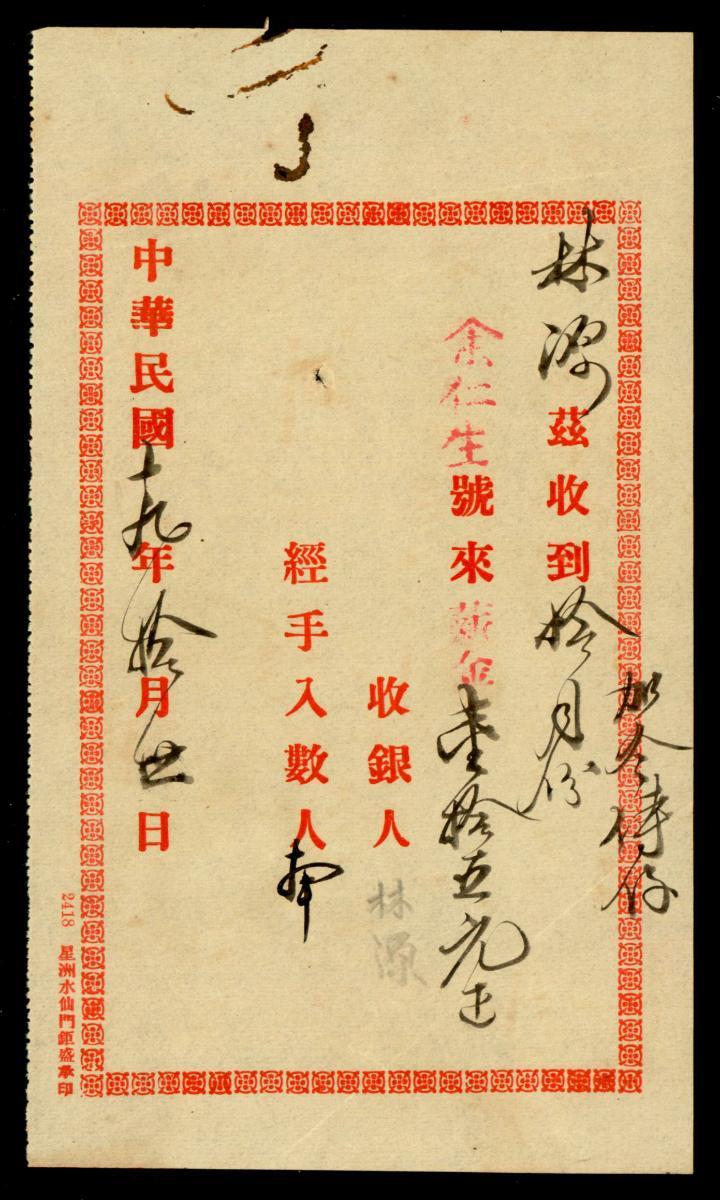 林源茲收到拾月份
余仁生號來薪金壹拾五元正
收銀人林源
經手入數人
中華民國十九年拾月廿日
2418 星洲水仙門鉅盛承印